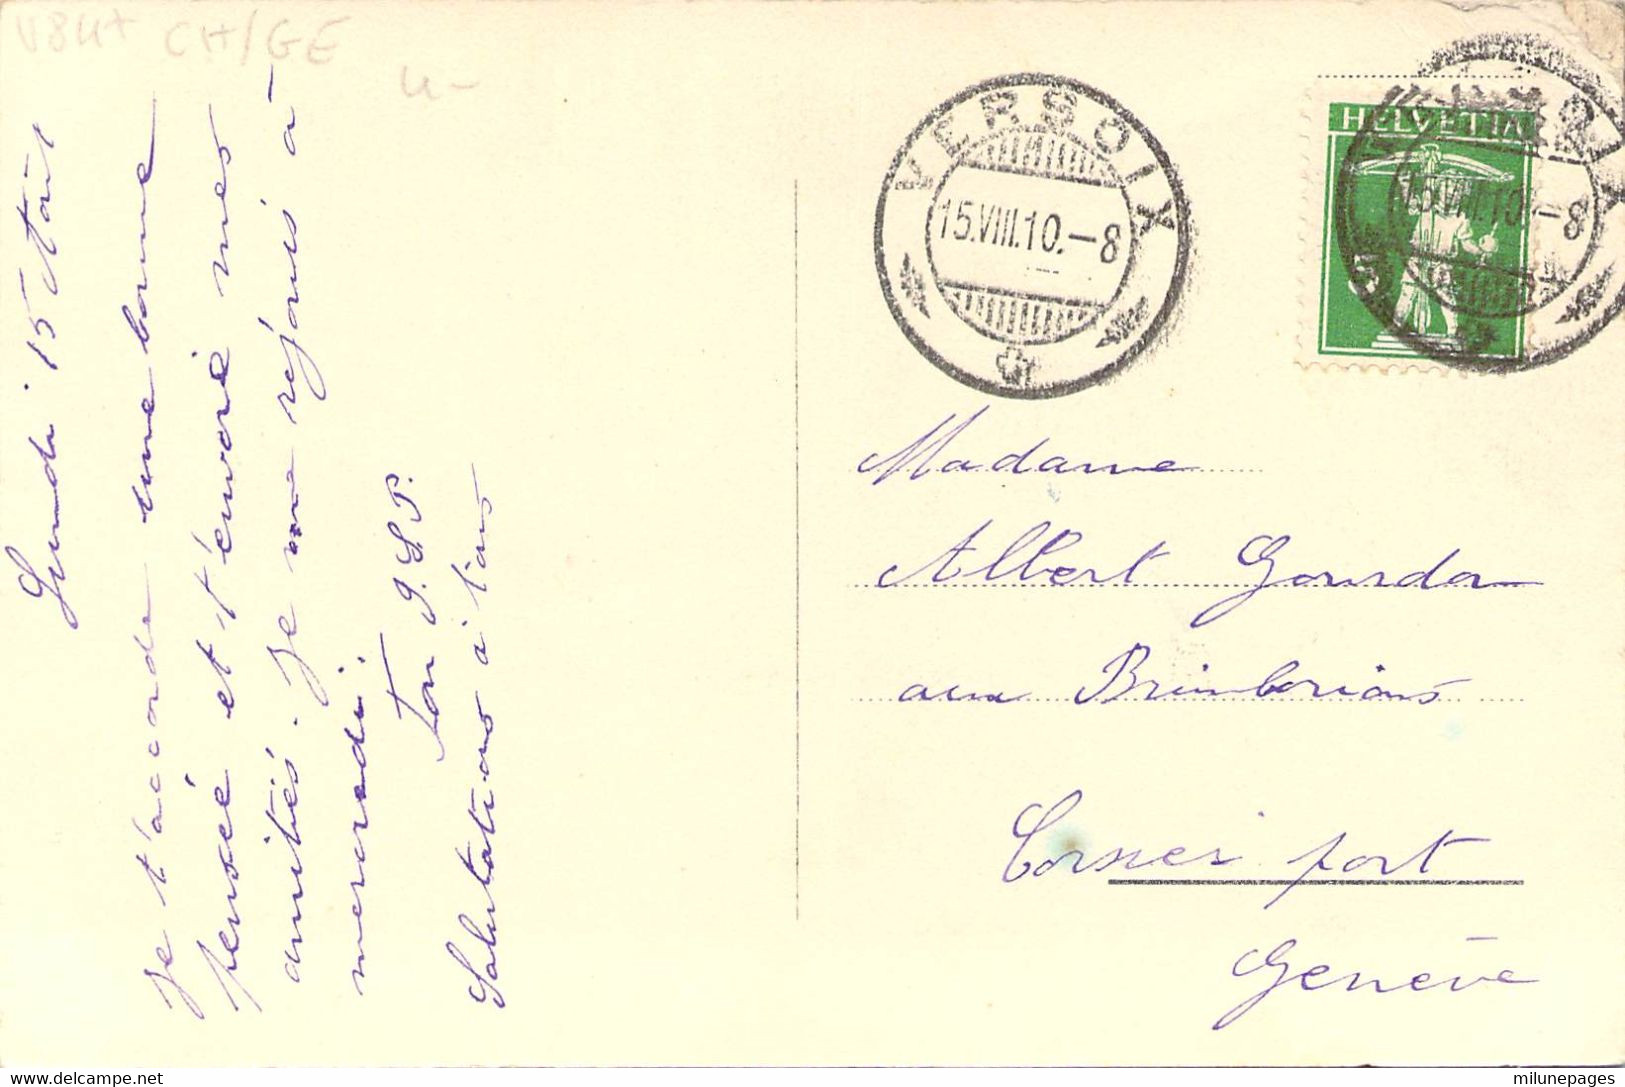 V84+ CH/GE
u-
Lundi 15 Août
Je t'accorde une bonne
pensée et t'envoie mes
amitiés. Je me réjouis à
mercredi.
Ton J. S. P.
Salutations à tous
VERSOIX
15.VIII.10.-8
HELVETIA
5
VERSOIX
15.VIII.10.-8
Madame
Albert Gourdon
aux Brimborions
Corsier port
Genève
www.delcampe.net
milunepages